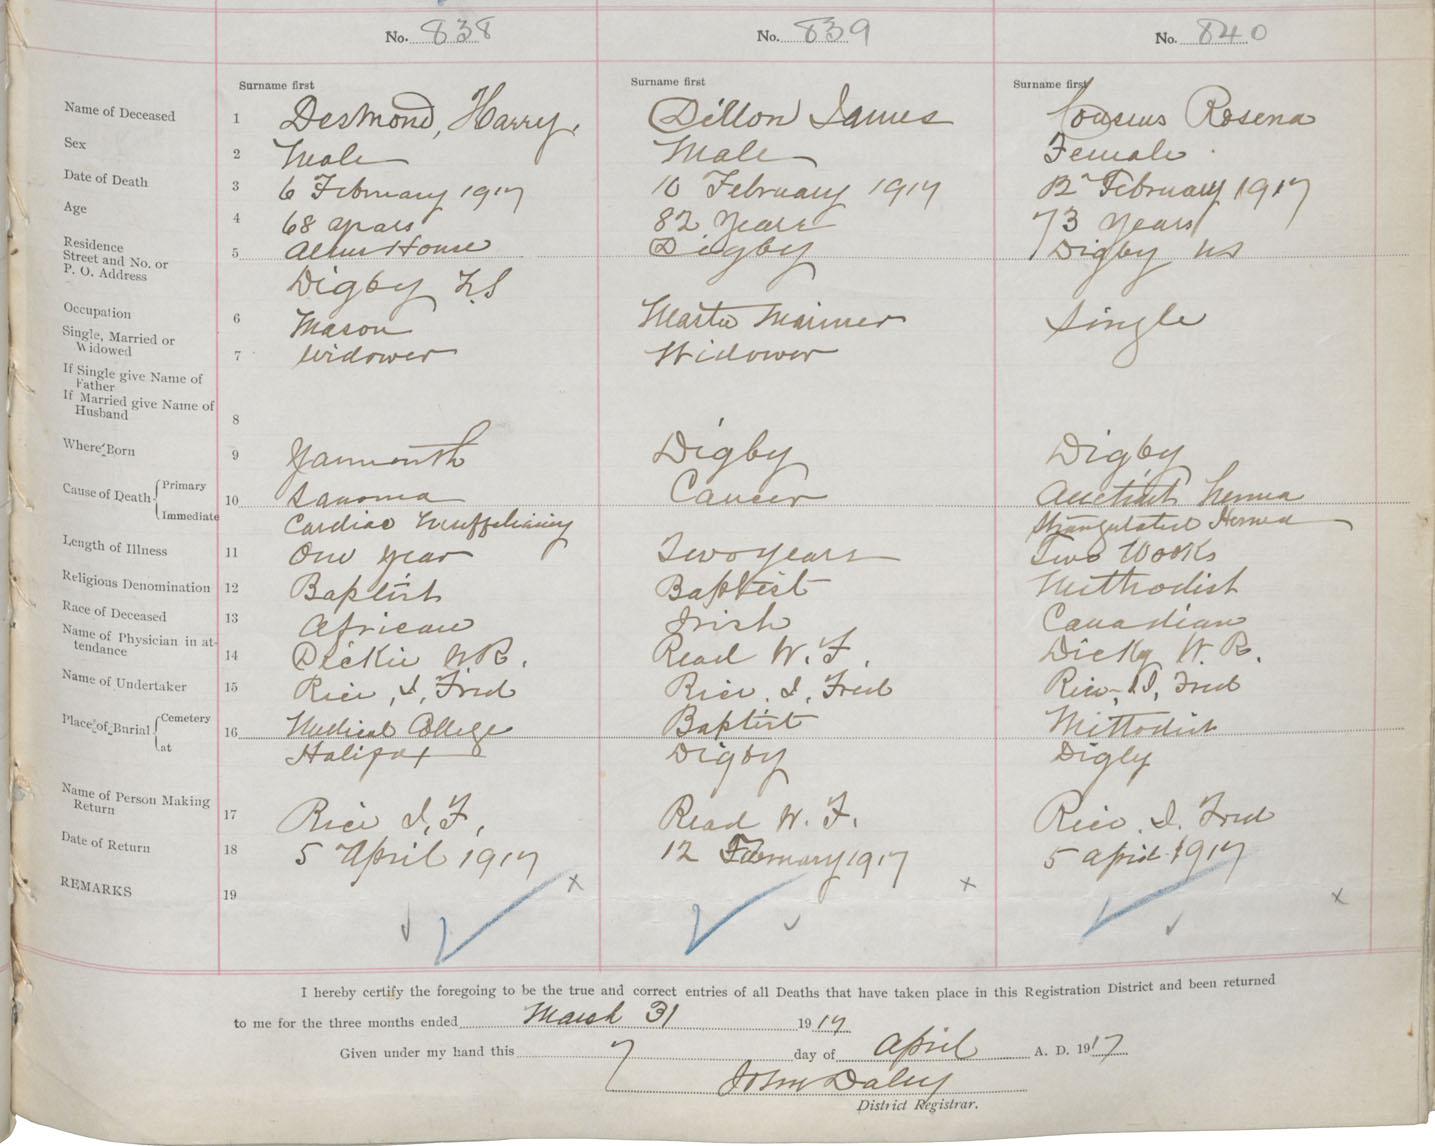 No. 838 No. 839 No. 840
Surname first Surname first Surname first
Name of Deceased 1 Desmond, Harry. Dillon James Rosena
Sex 2 Male Male Female
Date of Death 3 6 February 1917 10 February 1917 12 February 1917
Age 4 68 years 82 Years 73 Years
Residence
Street and No. or
P. O. Address 5 Alms House Digby Digby NS
Digby N.S
Occupation 6 Mason Master Mariner Single
Single, Married or
Widowed 7 Widower Widower
If Single give Name of
Father
If Married give Name of
Husband 8
Where Born 9 Yarmouth Digby Digby
Cause of Death { Primary 10 Sarcoma Cancer Hernia
Immediate Cardiac Insufficiency Strangulated Hernia
Length of Illness 11 One Year Two Years Two Weeks
Religious Denomination 12 Baptist Baptist Methodist
Race of Deceased 13 African Irish Canadian
Name of Physician in at-
tendance 14 Dickie W.R. Read W. F. Dicky W. R.
Name of Undertaker 15 Rice, I, Fred Rice. I, Fred Rice, I, Fred
Place of Burial { Cemetery 16 Medical College Baptist Methodist
at Halifax Digby Digby
Name of Person Making
Return 17 Rice I, F, Read W. F. Rice. I. Fred
Date of Return 18 5 April 1917 12 February 1917 5 April 1917
REMARKS 19 x x x
I hereby certify the foregoing to be the true and correct entries of all Deaths that have taken place in this Registration District and been returned
to me for the three months ended March 31 1917
Given under my hand this 7 day of April A. D. 1917
John Daley
District Registrar.